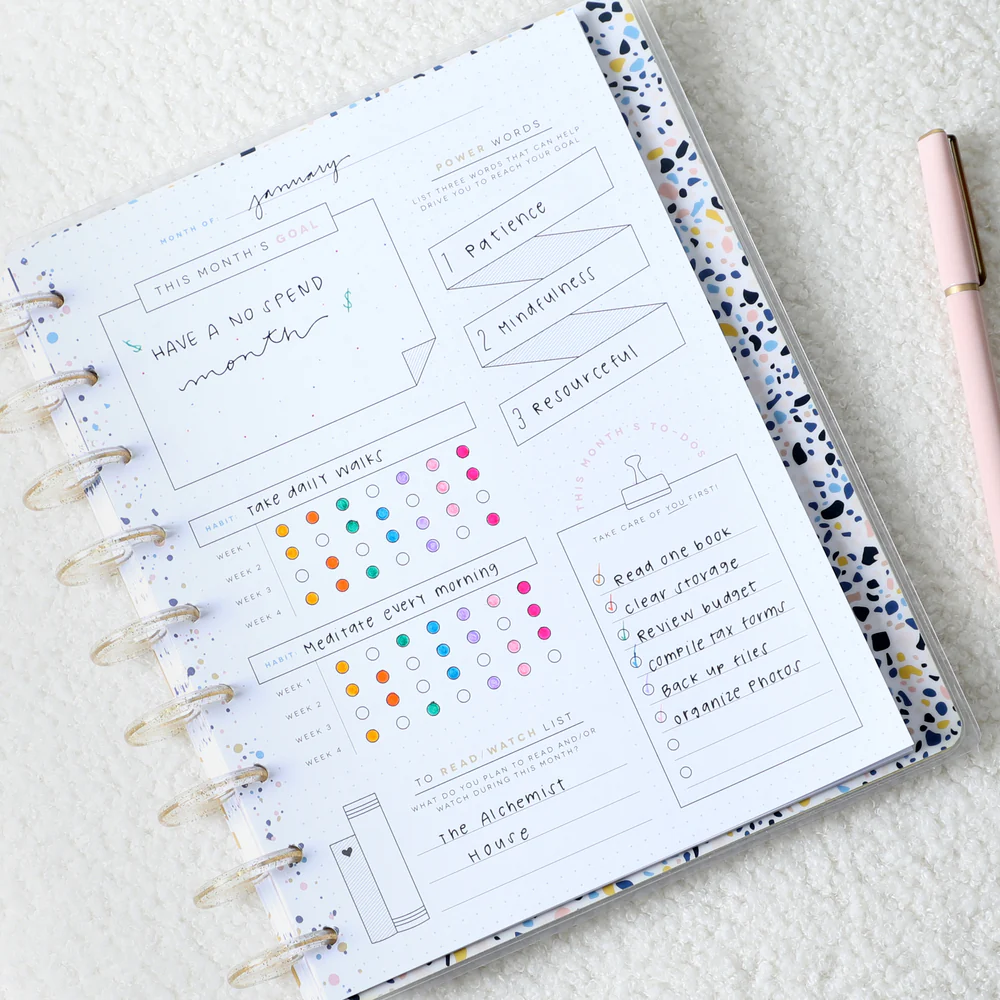 MONTH OF january
THIS MONTH'S GOAL
$ HAVE A NO SPEND $
month
POWER WORDS
LIST THREE WORDS THAT CAN HELP
DRIVE YOU TO REACH YOUR GOAL
1 Patience
2 Mindfulness
3 Resourceful
HABIT: Take daily walks
WEEK 1
WEEK 2
WEEK 3
WEEK 4
HABIT: Meditate every morning
WEEK 1
WEEK 2
WEEK 3
WEEK 4
THIS MONTH'S TO-DOS
TAKE CARE OF YOU FIRST!
Read one book
clear storage
Review budget
compile tax forms
Back up files
organize photos
TO READ/WATCH LIST
WHAT DO YOU PLAN TO READ AND/OR
WATCH DURING THIS MONTH?
The Alchemist
House